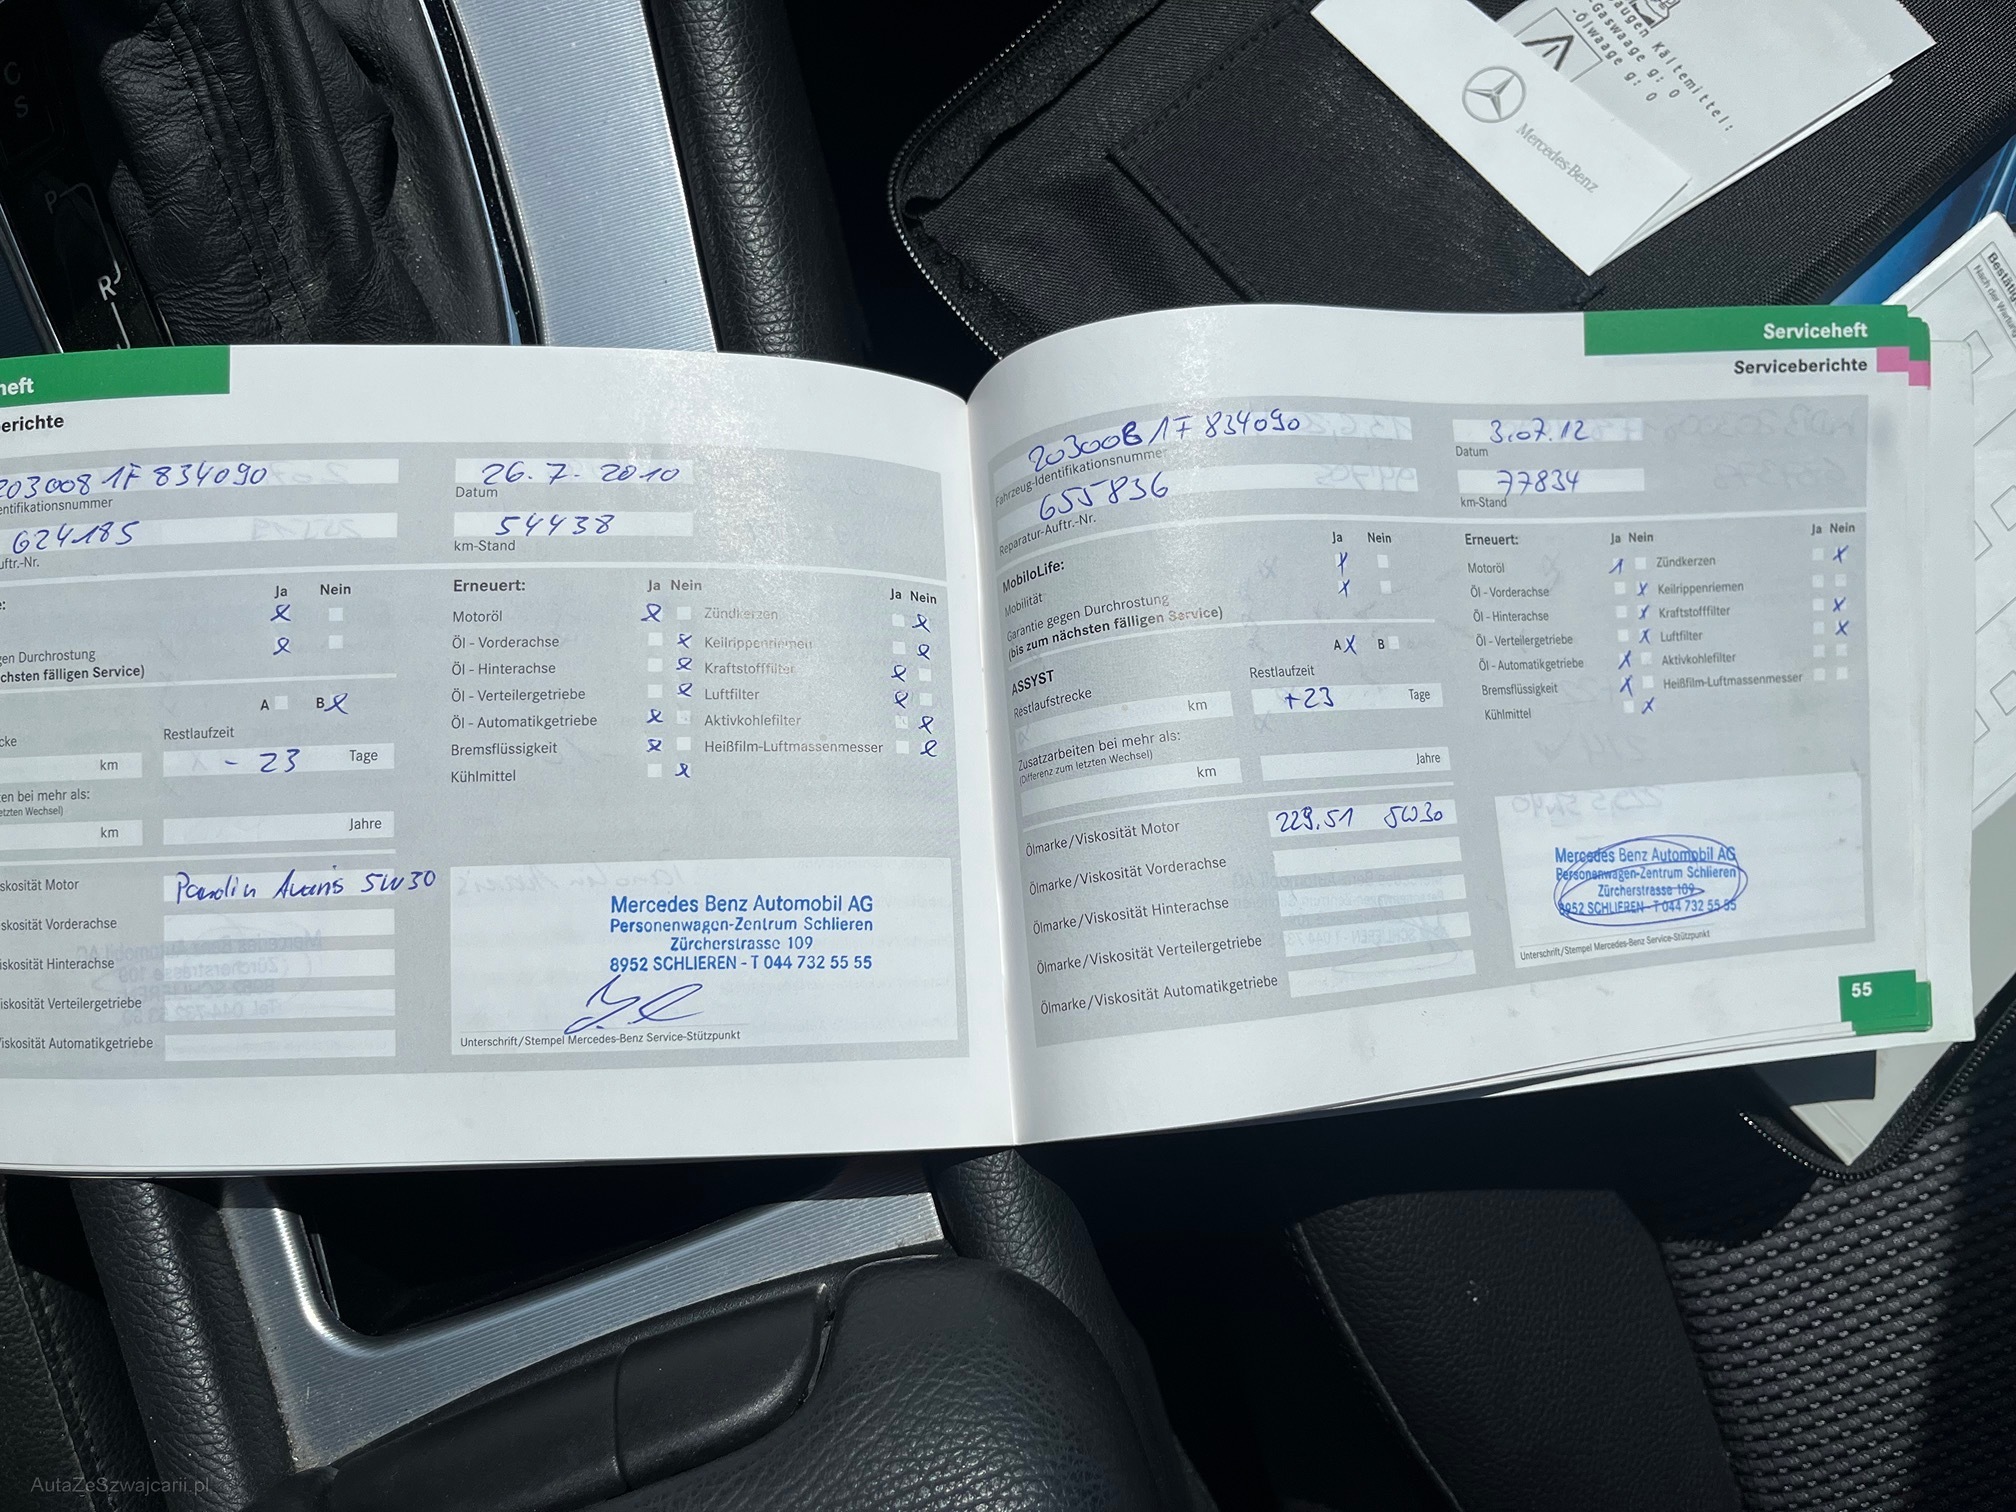 C
S
P
R
saugen Kältemittel:
-Gaswaage g: 0
-Ölwaage g: 0
Mercedes-Benz
Nach der Wartung
heft
erichte
203008 1F 834090
entifikationsnummer
624185
uftr.-Nr.
26. 7. 2010
Datum
54438
km-Stand
Ja Nein
gen Durchrostung
chsten fälligen Service)
A B
cke
Restlaufzeit
km
- 23 Tage
en bei mehr als:
etzten Wechsel)
km
Jahre
Erneuert: Ja Nein
Ja Nein
Motoröl
Zündkerzen
Öl - Vorderachse
Keilrippenriemen
Öl - Hinterachse
Kraftstofffilter
Öl - Verteilergetriebe
Luftfilter
Öl - Automatikgetriebe
Aktivkohlefilter
Bremsflüssigkeit
Heißfilm-Luftmassenmesser
Kühlmittel
skosität Motor
5W30
skosität Vorderachse
iskosität Hinterachse
iskosität Verteilergetriebe
iskosität Automatikgetriebe
Mercedes Benz Automobil AG
Personenwagen-Zentrum Schlieren
Zürcherstrasse 109
8952 SCHLIEREN - T 044 732 55 55
Unterschrift/Stempel Mercedes-Benz Service-Stützpunkt
Serviceheft
Serviceberichte
203008 1F 834090
Fahrzeug-Identifikationsnummer
655836
Reparatur-Auftr.-Nr.
3.07.12
Datum
77834
km-Stand
MobiloLife:
Ja Nein
Mobilität
Garantie gegen Durchrostung
(bis zum nächsten fälligen Service)
ASSYST
A X B
Restlaufstrecke
Restlaufzeit
km
+23 Tage
Zusatzarbeiten bei mehr als:
(Differenz zum letzten Wechsel)
km
Jahre
Erneuert: Ja Nein
Ja Nein
Motoröl
Zündkerzen
Öl - Vorderachse
Keilrippenriemen
Öl - Hinterachse
Kraftstofffilter
Öl - Verteilergetriebe
Luftfilter
Öl - Automatikgetriebe
Aktivkohlefilter
Bremsflüssigkeit
Heißfilm-Luftmassenmesser
Kühlmittel
Ölmarke/Viskosität Motor
229.51 5W30
Ölmarke/Viskosität Vorderachse
Ölmarke/Viskosität Hinterachse
Ölmarke/Viskosität Verteilergetriebe
Ölmarke/Viskosität Automatikgetriebe
Mercedes Benz Automobil AG
Personenwagen-Zentrum Schlieren
Zürcherstrasse 109
8952 SCHLIEREN - T 044 732 55 55
Unterschrift/Stempel Mercedes-Benz Service-Stützpunkt
55
AutaZeSzwajcarii.pl